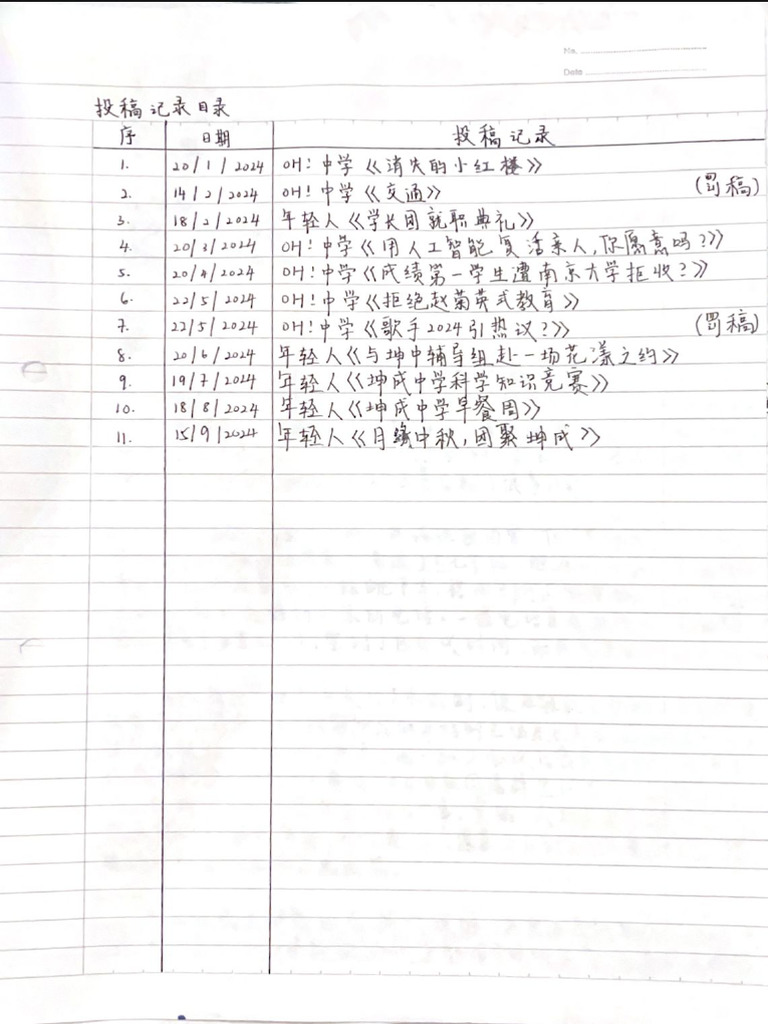 No.
Date
投稿记录目录
序 日期 投稿记录
1. 20/1/2024 OH! 中学《消失的小红楼》
2. 14/2/2024 OH! 中学《交通》 (罚稿)
3. 18/2/2024 年轻人《学长团就职典礼》
4. 20/3/2024 OH! 中学《用人工智能复活亲人,你愿意吗?》
5. 20/4/2024 OH! 中学《成绩第一学生遭南京大学拒收?》
6. 22/5/2024 OH! 中学《拒绝赵菊英式教育》
7. 22/5/2024 OH! 中学《歌手2024引热议?》 (罚稿)
8. 20/6/2024 年轻人《与坤中辅导组赴一场花漾之约》
9. 19/7/2024 年轻人《坤成中学科学知识竞赛》
10. 18/8/2024 年轻人《坤成中学早餐周》
11. 15/9/2024 年轻人《月缘中秋,团聚坤成》